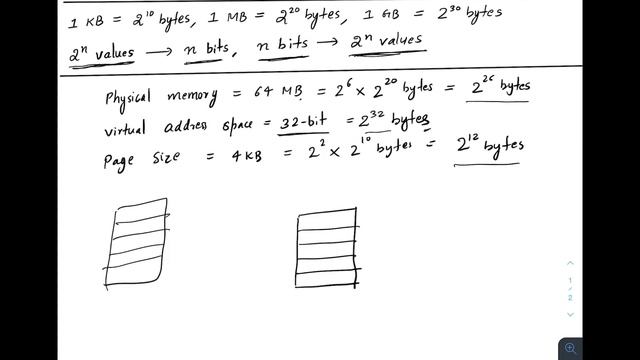 1 KB = 2¹⁰ bytes, 1 MB = 2²⁰ bytes, 1 GB = 2³⁰ bytes
2ⁿ values → n bits, n bits → 2ⁿ values
Physical memory = 64 MB = 2⁶ × 2²⁰ bytes = 2²⁶ bytes
virtual address space = 32-bit = 2³² bytes
Page size = 4KB = 2² × 2¹⁰ bytes = 2¹² bytes
1
/
2